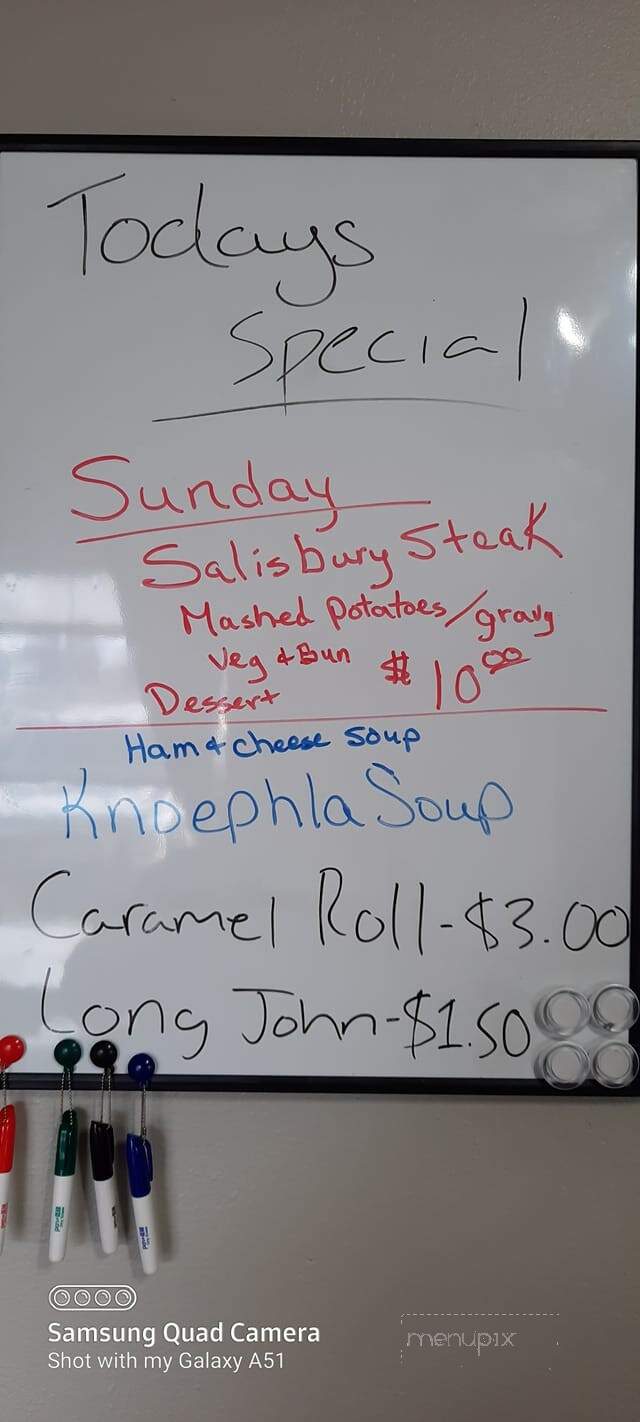 Todays
Special
Sunday
Salisbury Steak
Mashed Potatoes/gravy
Veg & Bun $10.00
Dessert
Ham & Cheese Soup
Knoephla Soup
Caramel Roll-$3.00
Long John-$1.50
Samsung Quad Camera
Shot with my Galaxy A51
menupix